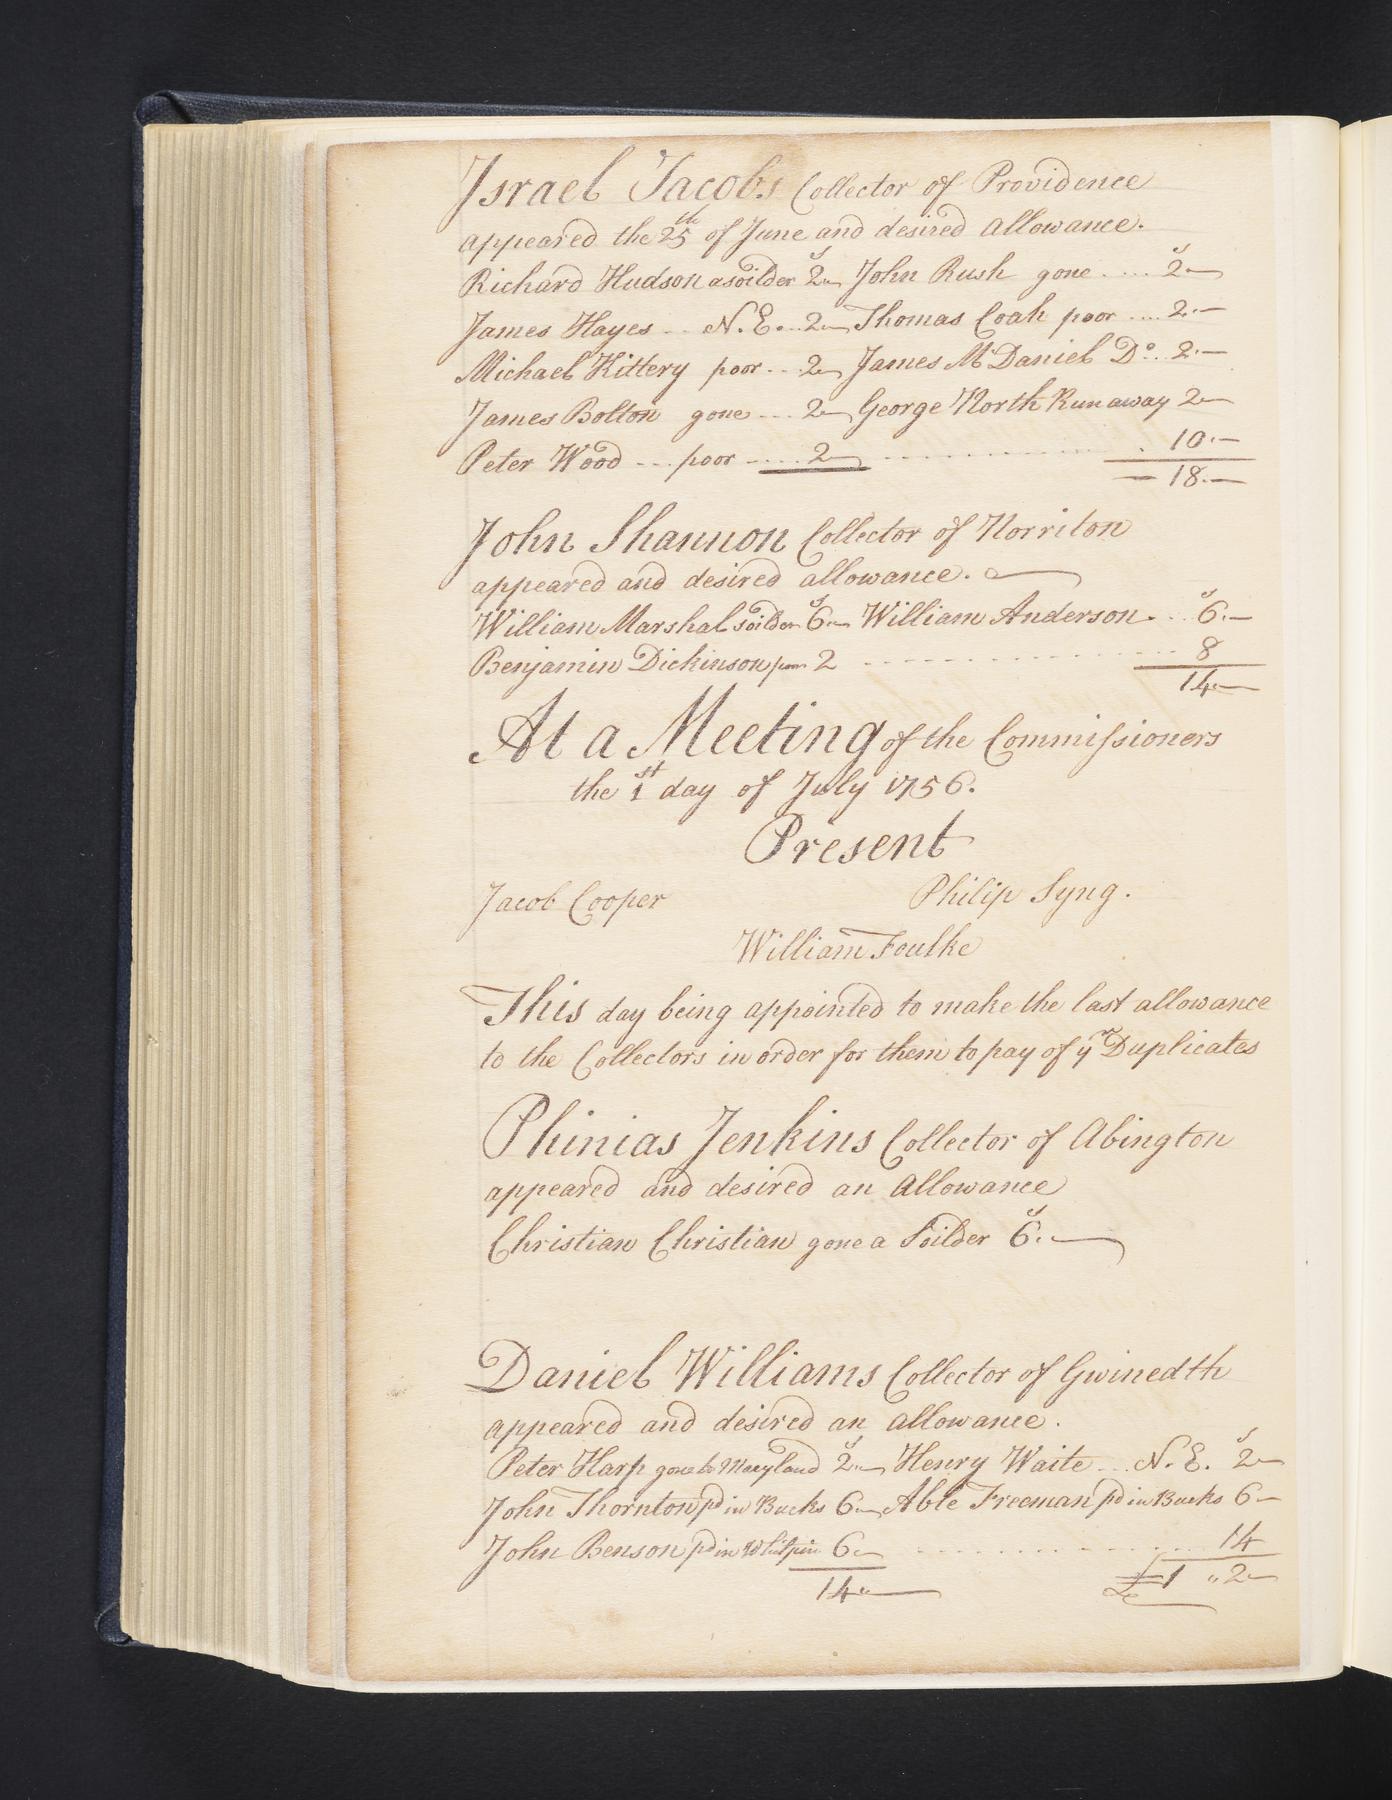 Israel Jacobs Collector of Providence
appeared the 25th of June and desired allowance.
Richard Hudson a soilder 2s John Rush gone .... 2s
James Hayes ... N.E. .. 2 Thomas Coah poor .... 2.—
Michael Kittery poor ... 2 James McDaniel Do .. 2.—
James Bolton gone .... 2 George North Runaway 2—
10.—
Peter Wood ... poor ..... 2
— 18.—
John Shannon Collector of Norriton
appeared and desired allowance.
William Marshal soilder 6s.— William Anderson ... 6s.—
Benjamin Dickinson poor 2 8
14.—
At a Meeting of the Commissioners
the 1st day of July 1756.
Present
Jacob Cooper Philip Syng.
William Foulke
This day being appointed to make the last allowance
to the Collectors in order for them to pay of yr Duplicates
Phinias Jenkins Collector of Abington
appeared and desired an Allowance
Christian Christian gone a Soilder 6s.—
Daniel Williams Collector of Gwinedth
appeared and desired an allowance.
Peter Harp gone to Maryland 2s.— Henry Waite ... N.E. 2s—
John Thornton pd in Bucks 6.— Able Freeman pd in Bucks 6—
John Benson pd in Whitpin 6.— 14
14.— £1 „ 2—